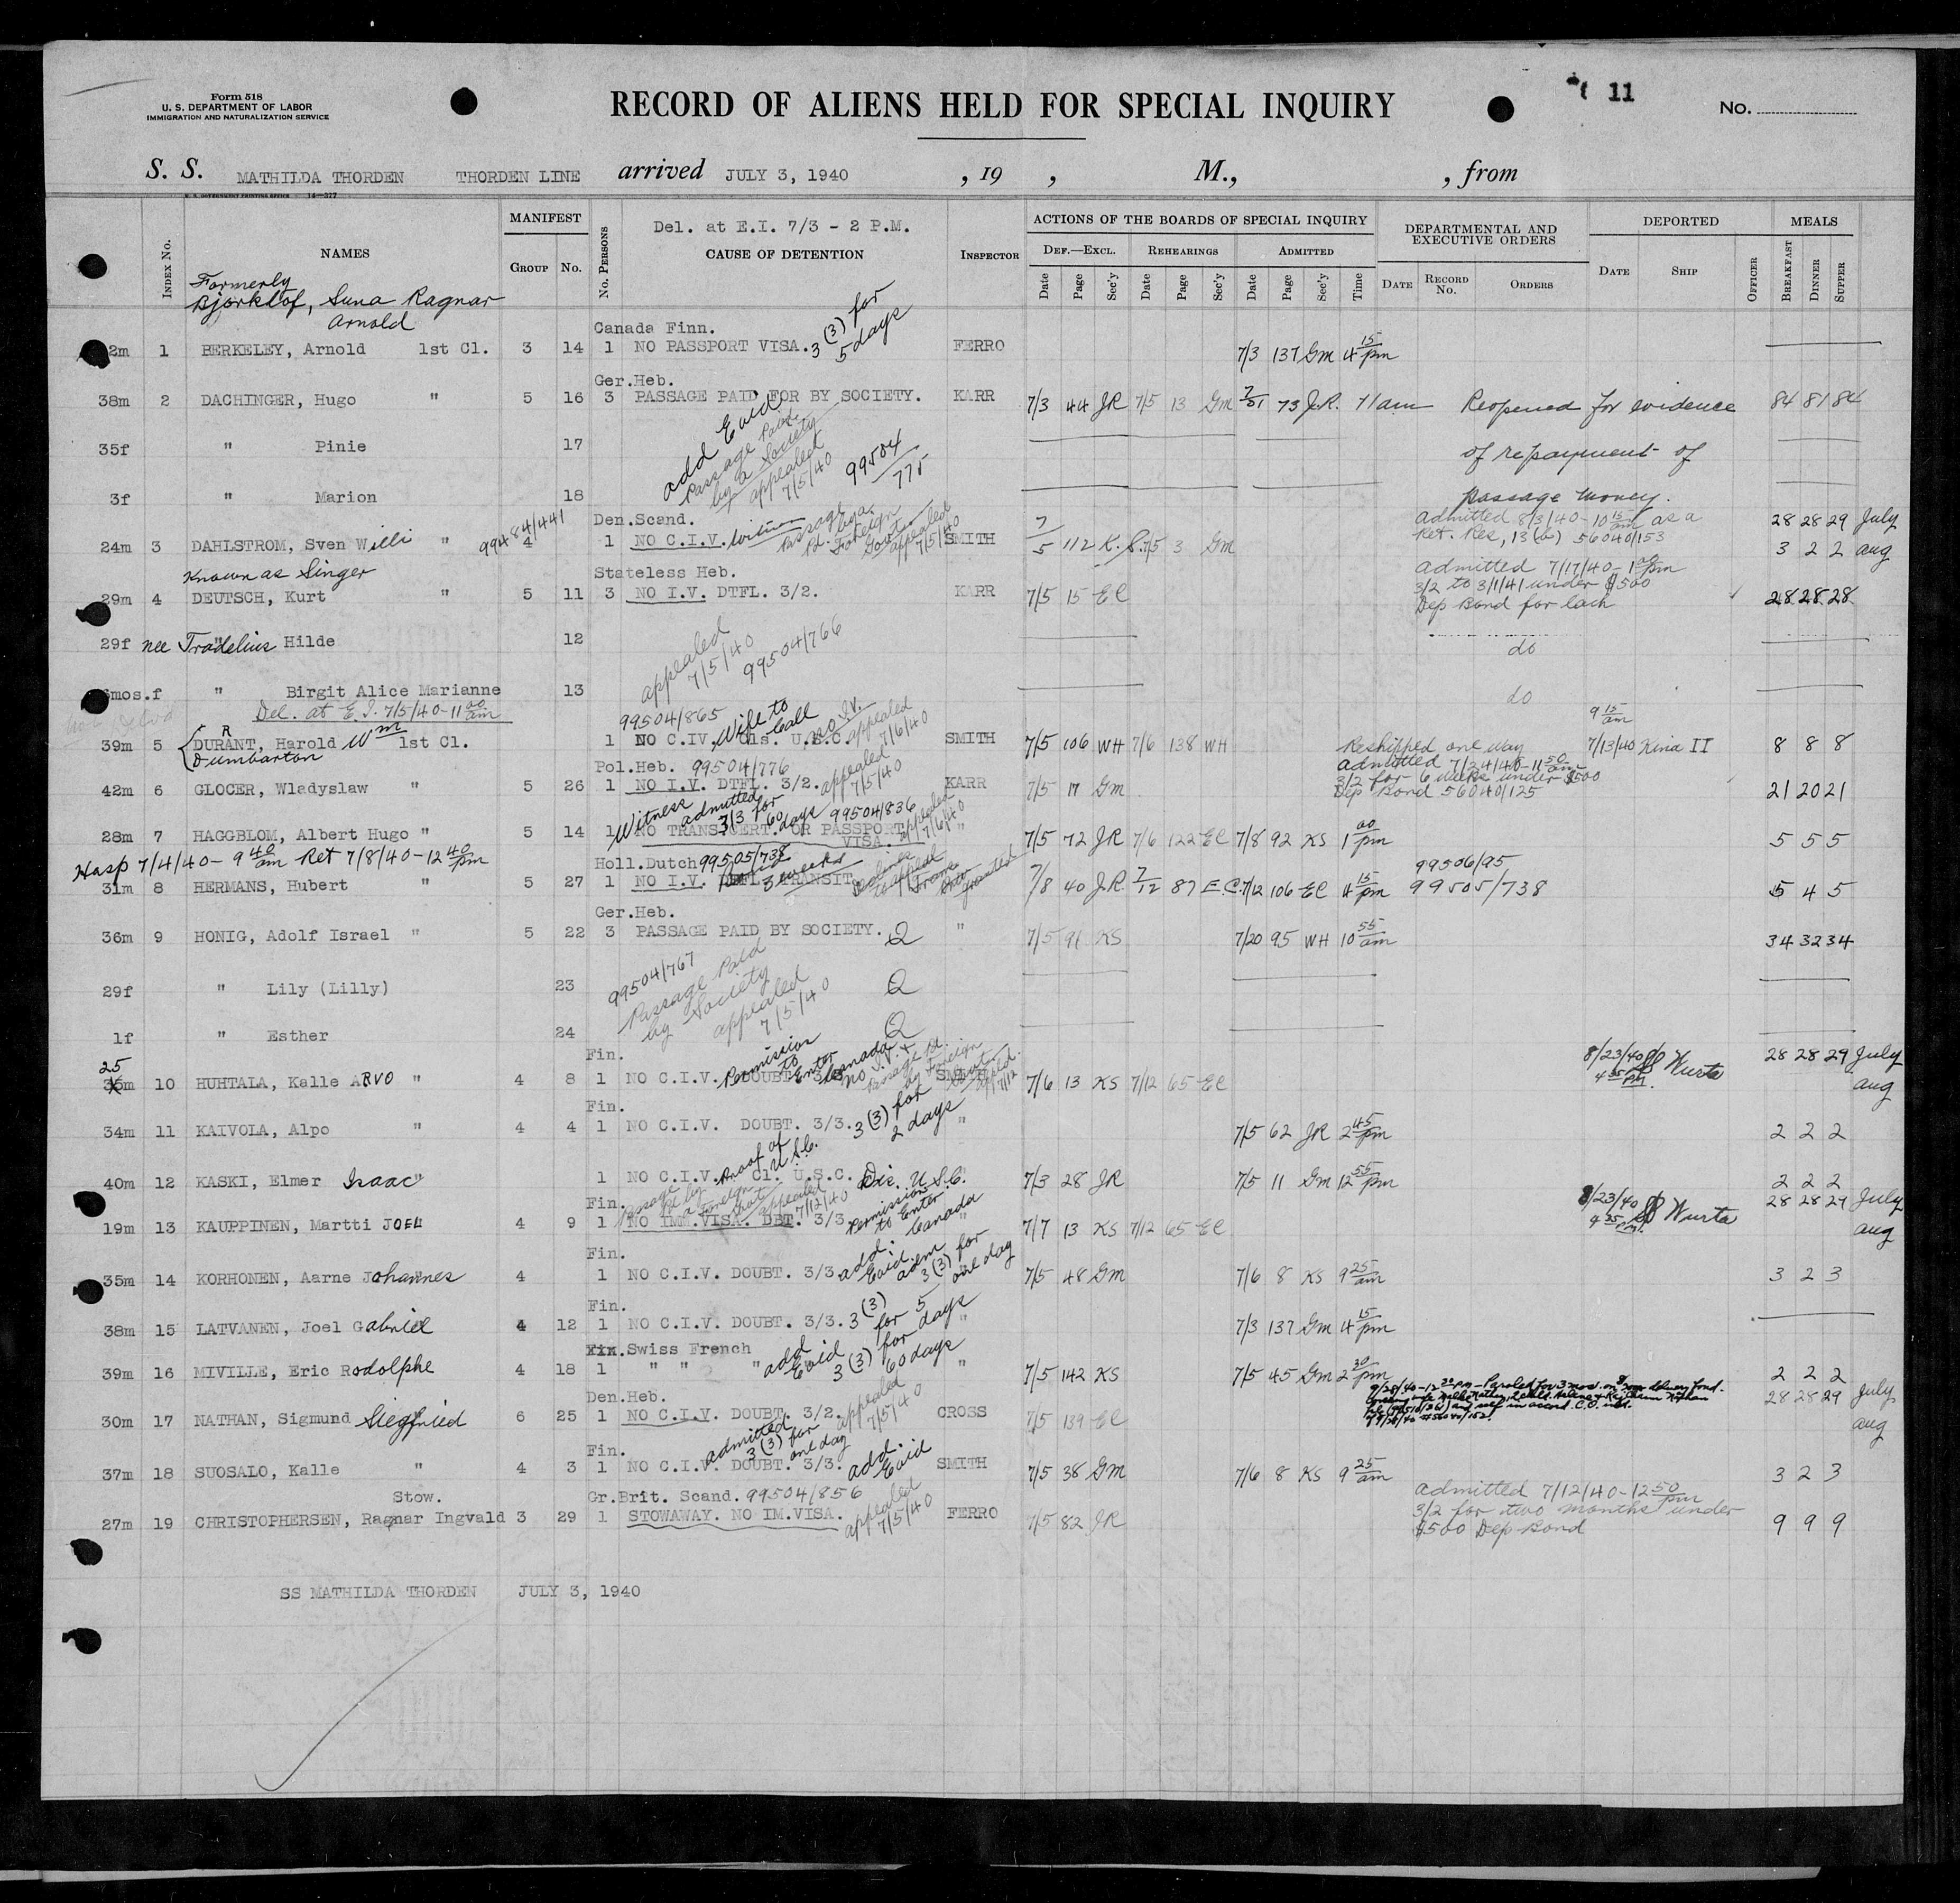 Form 518
U. S. DEPARTMENT OF LABOR
IMMIGRATION AND NATURALIZATION SERVICE
RECORD OF ALIENS HELD FOR SPECIAL INQUIRY
11
No.
S. S. MATHILDA THORDEN THORDEN LINE arrived JULY 3, 1940 , 19 , M., , from
U. S. GOVERNMENT PRINTING OFFICE 14—377
Index No. NAMES MANIFEST Group No. No. Persons Del. at E.I. 7/3 - 2 P.M. CAUSE OF DETENTION Inspector ACTIONS OF THE BOARDS OF SPECIAL INQUIRY Def.—Excl. Rehearings Admitted DEPARTMENTAL AND EXECUTIVE ORDERS DEPORTED MEALS
Date Page Sec'y Date Page Sec'y Date Page Sec'y Time Date Record No. Orders Date Ship Officer Breakfast Dinner Supper
Formerly
Bjorklof, Suna Ragnar
Arnold
Canada Finn.
2m 1 BERKELEY, Arnold 1st Cl. 3 14 1 NO PASSPORT VISA. 3 (3) for 5 days FERRO 7/3 137 Gm 4 15 pm
Ger.Heb.
38m 2 DACHINGER, Hugo " 5 16 3 PASSAGE PAID FOR BY SOCIETY. KARR 7/3 44 JR 7/5 13 Gm 7/31 73 J.R. 11 am Reopened for evidence 84 81 84
35f " Pinie 17 of repayment of
add Evid
Passage Paid
by a Society
appealed
7/5/40
99504/775
3f " Marion 18 passage money.
Den.Scand. Admitted 8/3/40-10 15 am as a 28 28 29 July
99484/441
24m 3 DAHLSTROM, Sven Willi " 4 1 NO C.I.V. Passage Pd. by a Foreign Govt appealed 7/5/40 SMITH 7/5 112 K.S. 7/5 3 Gm Ret. Res, 13(b) 56040/153 3 2 2 Aug
Known as Singer
Stateless Heb. Admitted 7/17/40- pm
29m 4 DEUTSCH, Kurt " 5 11 3 NO I.V. DTFL. 3/2. KARR 7/5 15 EC 3/2 to 3/1/41 under $500 Dep Bond for each 28 28 28
29f nee Tradelius Hilde 12 do
appealed
7/5/40
99504/766
mos.f " Birgit Alice Marianne 13 do
Del. at E.I. 7/5/40-11 00 am
99504/865 Wife to Call No I.V. appealed 7/6/40 9 15 am
39m 5 DURANT, Harold Wm 1st Cl. 1 NO C.IV. Cls. U.S.C. SMITH 7/5 106 WH 7/6 138 WH Reshipped one way 7/13/40 Kina II 8 8 8
Dumbarton
Pol.Heb. 99504/776 appealed 7/5/40 Admitted 7/24/40-11 50 am
42m 6 GLOCER, Wladyslaw " 5 26 1 NO I.V. DTFL. 3/2. KARR 7/5 17 Gm 3/2 for 6 weeks under $500 21 20 21
Dep Bond 56040/125
Witness admitted 3/3 for 60 days 99504/836 appealed 7/6/40
28m 7 HAGGBLOM, Albert Hugo " 5 14 1 NO TRANS.CERT. OR PASSPORT VISA. " 7/5 72 JR 7/6 122 EC 7/8 92 KS 1 00 pm 5 5 5
Hosp 7/4/40- 9 40 am Ret 7/8/40-12 40 pm
Holl.Dutch 99505/738 3 weeks 99506/95
31m 8 HERMANS, Hubert " 5 27 1 NO I.V. DTFL. TRANSIT 7/8 40 J.R. 7/12 87 E.C. 7/12 106 EC 4 15 pm 99505/738 5 4 5
Ger.Heb.
36m 9 HONIG, Adolf Israel " 5 22 3 PASSAGE PAID BY SOCIETY. Q " 7/5 91 KS 7/20 95 WH 10 55 am 34 32 34
99504/767
Passage Paid
by Society
appealed
7/5/40
29f " Lily (Lilly) 23 Q
1f " Esther 24 Q
Fin. Permission to Enter Canada 8/23/40 SS Wurta 28 28 29 July
25
36m 10 HUHTALA, Kalle ARVO " 4 8 1 NO C.I.V. DOUBT. 3/3 SMITH 7/6 13 KS 7/12 65 EC 4 35 PM. Aug
Fin.
34m 11 KAIVOLA, Alpo " 4 4 1 NO C.I.V. DOUBT. 3/3. 3 (3) for 2 days " 7/5 62 JR 2 45 pm 2 2 2
Proof of U.S.C.
40m 12 KASKI, Elmer Isaac " 1 NO C.I.V. Cl. U.S.C. Dis. U.S.C. " 7/3 28 JR 7/5 11 Gm 12 55 pm 2 2 2
Fin. Passage Pd by a Foreign Govt appealed 7/12/40 Permission to Enter Canada 8/23/40 SS Wurta 28 28 29 July
19m 13 KAUPPINEN, Martti JOEL 4 9 1 NO IMM.VISA. DBT. 3/3 " 7/7 13 KS 7/12 65 EC 4 35 PM. Aug
Fin. add. Evid. adm 3 (3) for one day
35m 14 KORHONEN, Aarne Johannes " 4 1 NO C.I.V. DOUBT. 3/3. " 7/5 48 Gm 7/6 8 KS 9 25 am 3 2 3
Fin.
38m 15 LATVANEN, Joel Gabriel 4 12 1 NO C.I.V. DOUBT. 3/3. 3 (3) for 5 days " 7/3 137 Gm 4 15 pm
Fin. Swiss French
39m 16 MIVILLE, Eric Rodolphe 4 18 1 " " " add Evid 3 (3) for 60 days " 7/5 142 KS 7/5 45 Gm 2 30 pm 2 2 2
Den.Heb. 28 28 29 July
30m 17 NATHAN, Sigmund Siegfried 6 25 1 NO C.I.V. DOUBT. 3/2. appealed 7/5/40 CROSS 7/5 139 EC Aug
Fin. admitted 3 (3) for one day
37m 18 SUOSALO, Kalle " 4 3 1 NO C.I.V. DOUBT. 3/3. add. Evid SMITH 7/5 38 Gm 7/6 8 KS 9 25 am 3 2 3
Stow. Gr.Brit. Scand. 99504/856 Admitted 7/12/40-12 50 pm
27m 19 CHRISTOPHERSEN, Ragnar Ingvald 3 29 1 STOWAWAY. NO IM.VISA. appealed 7/5/40 FERRO 7/5 82 JR 3/2 for two months under $500 Dep Bond 9 9 9
SS MATHILDA THORDEN JULY 3, 1940